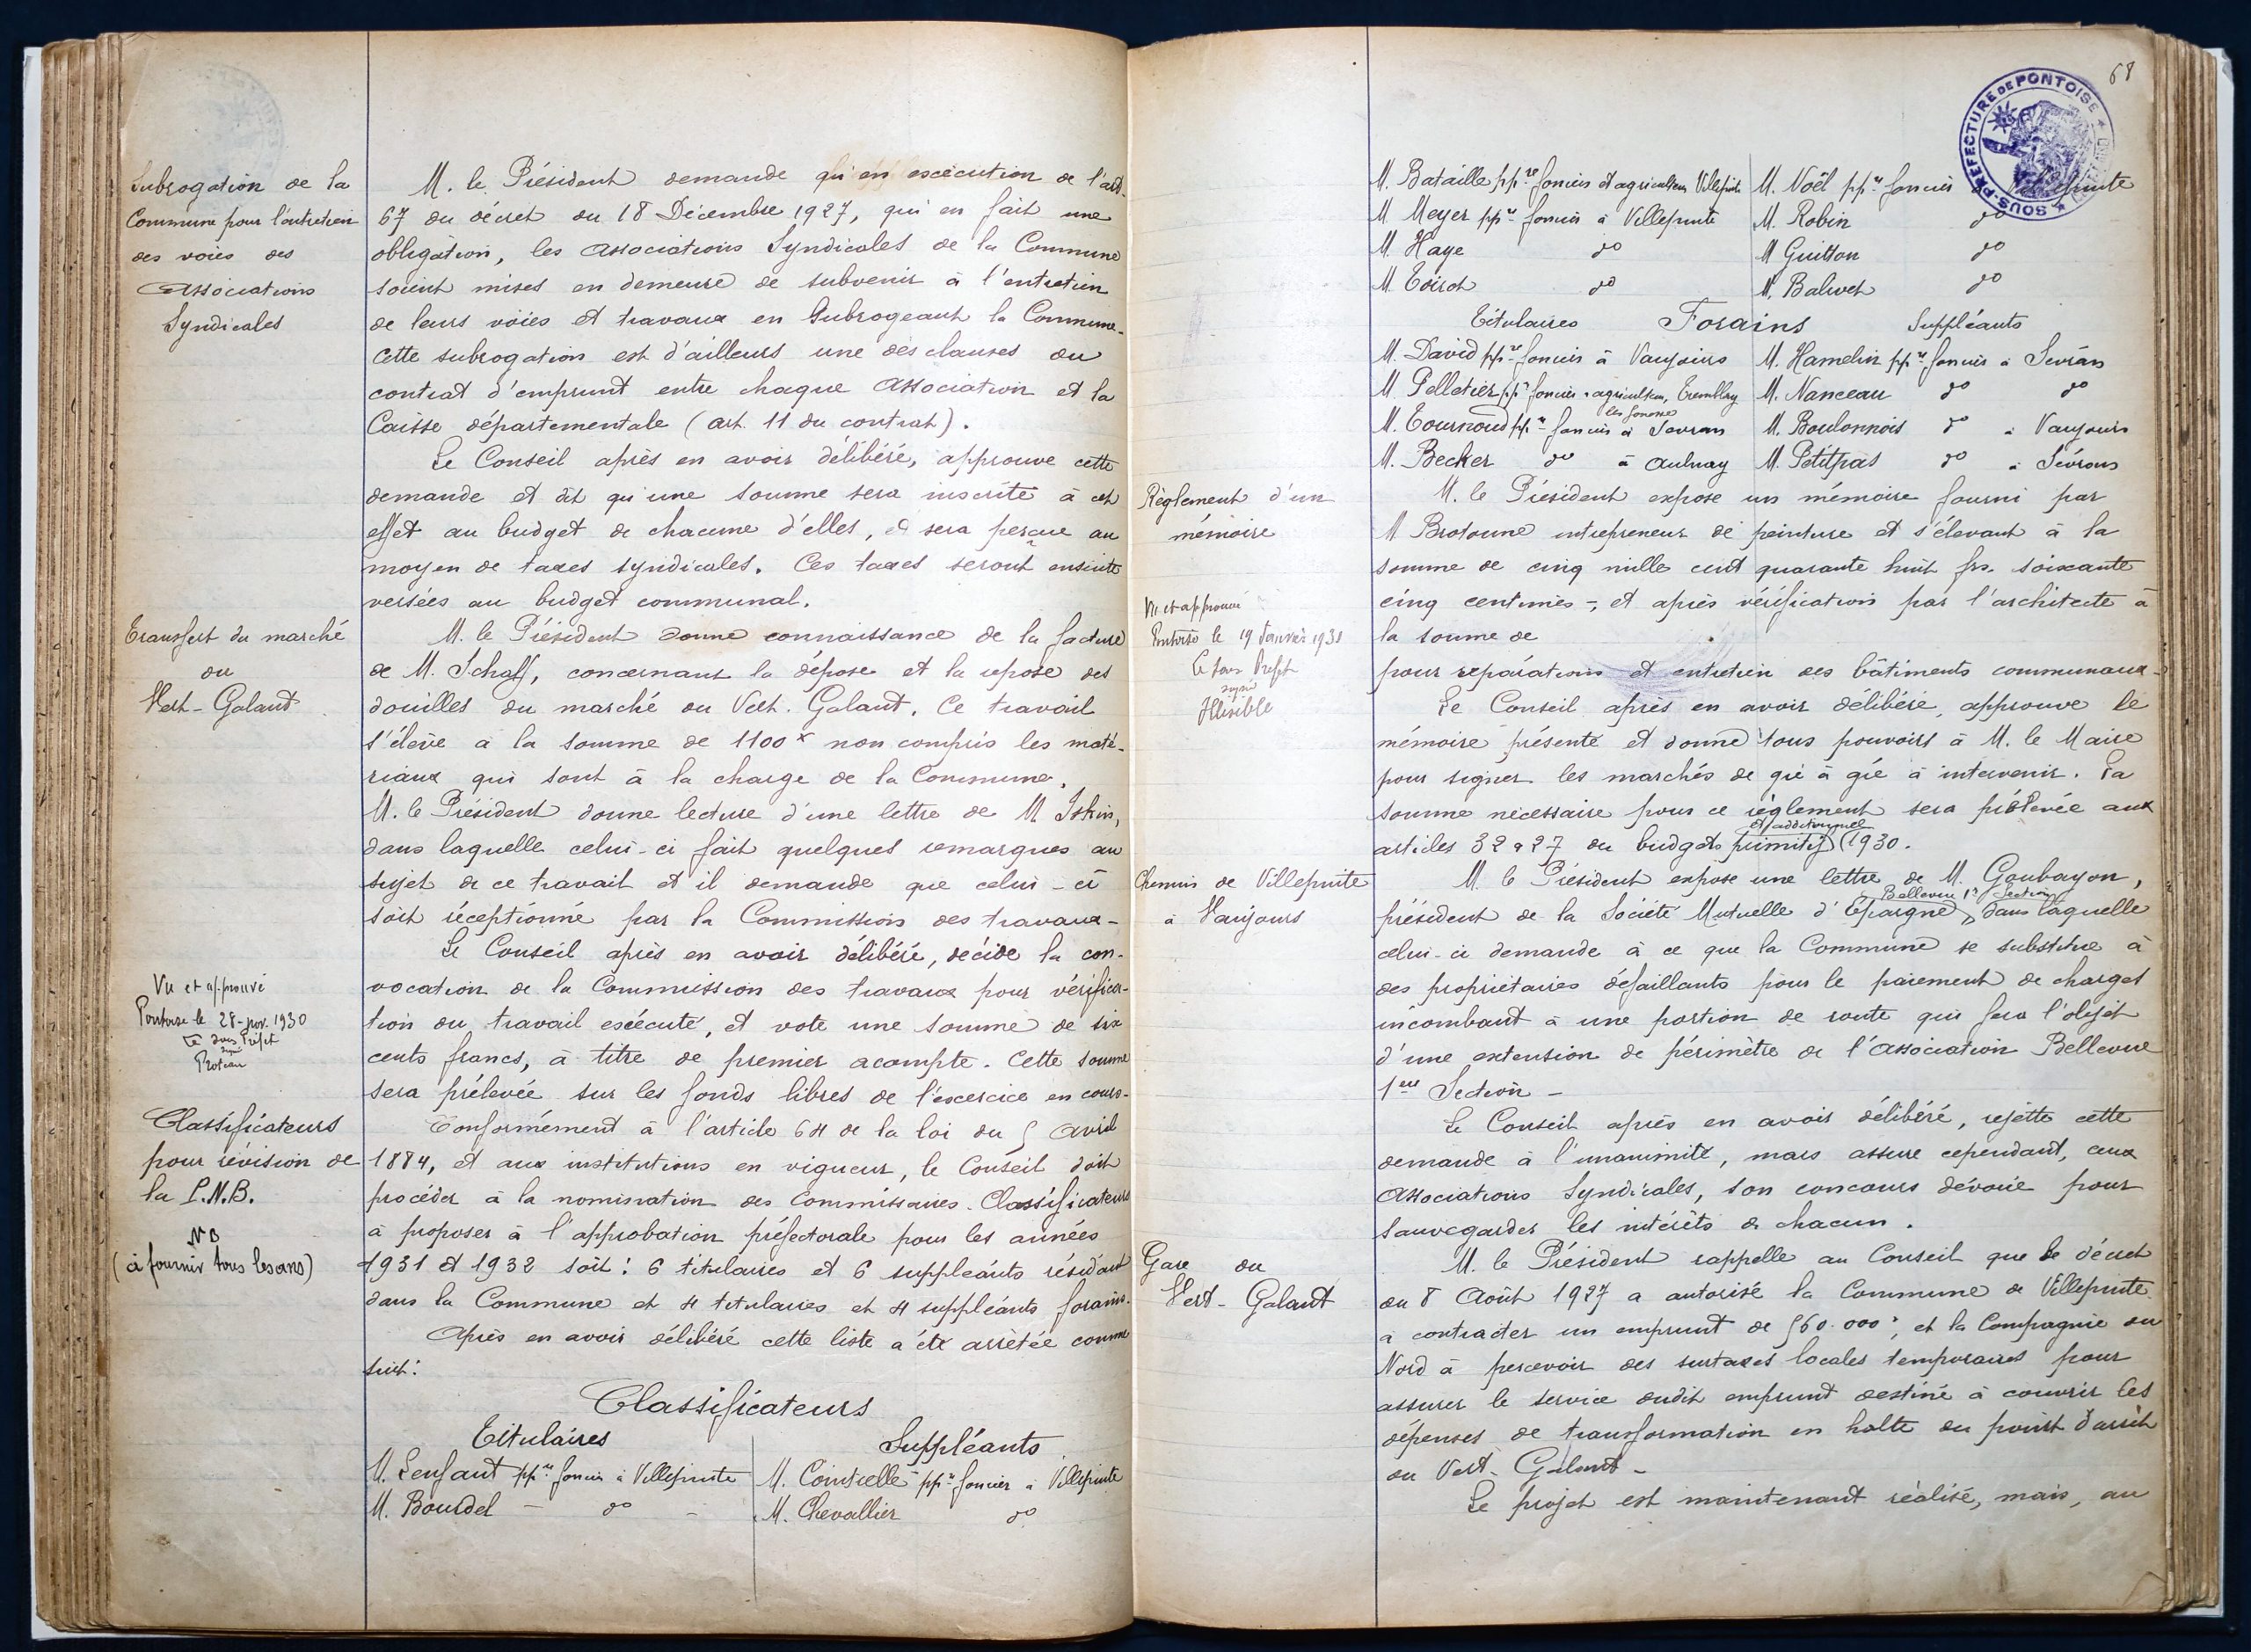 Subrogation de la
Commune pour l'entretien
des voies des
Associations
Syndicales
M. le Président demande qu'en exécution de l'art.
67 du décret du 18 Décembre 1927, qui en fait une
obligation, les Associations Syndicales de la Commune
soient mises en demeure de subvenir à l'entretien
de leurs voies et travaux en subrogeant la Commune.
Cette subrogation est d'ailleurs une des clauses du
contrat d'emprunt entre chaque Association et la
Caisse départementale (art. 11 du contrat).
Le Conseil après en avoir délibéré, approuve cette
demande et dit qu'une somme sera inscrite à cet
effet au budget de chacune d'elles, et sera perçue au
moyen de taxes syndicales. Ces taxes seront ensuite
versées au budget communal.
Transfert du marché
du
Vert-Galant
M. le Président donne connaissance de la facture
de M. Schaff, concernant la dépose et la repose des
douilles du marché du Vert-Galant. Ce travail
s'élève à la somme de 1100 non compris les maté-
riaux qui sont à la charge de la Commune.
M. le Président donne lecture d'une lettre de M.
dans laquelle celui-ci fait quelques remarques au
sujet de ce travail et il demande que celui-ci
soit réceptionné par la Commission des travaux-
Le Conseil après en avoir délibéré, décide la con-
vocation de la Commission des travaux pour vérifica-
tion du travail exécuté, et vote une somme de six
cents francs, à titre de premier acompte. Cette somme
sera prélevée sur les fonds libres de l'exercice en cours-
Vu et approuvé
Pontoise le 28-nov. 1930
Le Sous Préfet
signé
Classificateurs
pour révision de
la P.N.B.
NB
(à fournir tous les ans)
Conformément à l'article 64 de la loi du 5 Avril
1884, et aux institutions en vigueur, le Conseil doit
procéder à la nomination des Commissaires-Classificateurs
à proposer à l'approbation préfectorale pour les années
1931 et 1932 soit: 6 titulaires et 6 suppléants résidant
dans la Commune et 4 titulaires et 4 suppléants forains.
Après en avoir délibéré cette liste a été arrêtée comme
suit:
Classificateurs
Titulaires Suppléants
M. Lenfant pp.re foncier à Villepinte M. Cointrelle pp.re foncier à Villepinte
M. Bourdel - do - M. Chevallier do
68
SOUS-PREFECTURE DE PONTOISE
M. Bataille pp.re foncier et agriculteur Villepinte M. Noël pp.re foncier à Villepinte
M. Meyer pp.re foncier à Villepinte M. Robin do
M. Haye do M. Guitton do
M. Toirot do M. Baluet do
Titulaires Forains Suppléants
M. David pp.re foncier à Vaujours M. Hamelin pp.re foncier à Sevran
M. Pelletier pp.re foncier agriculteur, Tremblay les Gonesse M. Nanceau do do
M. Tournoud pp.re foncier à Sevran M. Boulonnois do à Vaujours
M. Becker do à Aulnay M. Petitpas do à Sevran
Règlement d'un
mémoire
M. le Président expose un mémoire fourni par
M. Brotonne entrepreneur de peinture et s'élevant à la
somme de cinq mille cent quarante huit frs. soixante
cinq centimes-, et après vérification par l'architecte à
la somme de
pour réparations et entretien des bâtiments communaux-
Vu et approuvé
Pontoise le 19 Janvier 1931
Le Sous Préfet
signé
Illisible
Le Conseil après en avoir délibéré, approuve le
mémoire présenté et donne tous pouvoirs à M. le Maire
pour signer les marchés de gré à gré à intervenir. La
somme nécessaire pour ce règlement sera prélevée aux
articles 32 & 27 du budgets primitif et additionnel 1930.
Chemin de Villepinte
à Vaujours
M. le Président expose une lettre de M. Goubayon,
président de la Société Mutuelle d'Epargne Bellevue 1re Section, dans laquelle
celui-ci demande à ce que la Commune se substitue à
des propriétaires défaillants pour le paiement de charges
incombant à une portion de route qui fera l'objet
d'une extension de périmètre de l'Association Bellevue
1ere Section -
Le Conseil après en avoir délibéré, rejette cette
demande à l'unanimité, mais assure cependant, aux
Associations Syndicales, son concours dévoué pour
sauvegarder les intérêts de chacun.
Gare du
Vert-Galant
M. le Président rappelle au Conseil que le décret
du 8 Août 1927 a autorisé la Commune de Villepinte
à contracter un emprunt de 560.000, et la Compagnie du
Nord à percevoir des surtaxes locales temporaires pour
assurer le service dudit emprunt destiné à couvrir les
dépenses de transformation en halte du point d'arrêt
du Vert-Galant-
Le projet est maintenant réalisé, mais, au